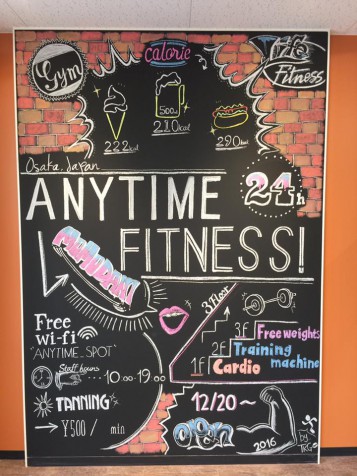 Gym
calorie
Fitness
500ml
222kcal
210kcal
290kcal
Osaka, Japan
ANYTIME
24h
FITNESS!
3 Floor
Free
wi-fi
"ANYTIME_SPOT"
3f Free weights
2f Training
machine
1f Cardio
Staff hours
10:00-19:00
TANNING
¥500/min
12/20~
Open
2016
by